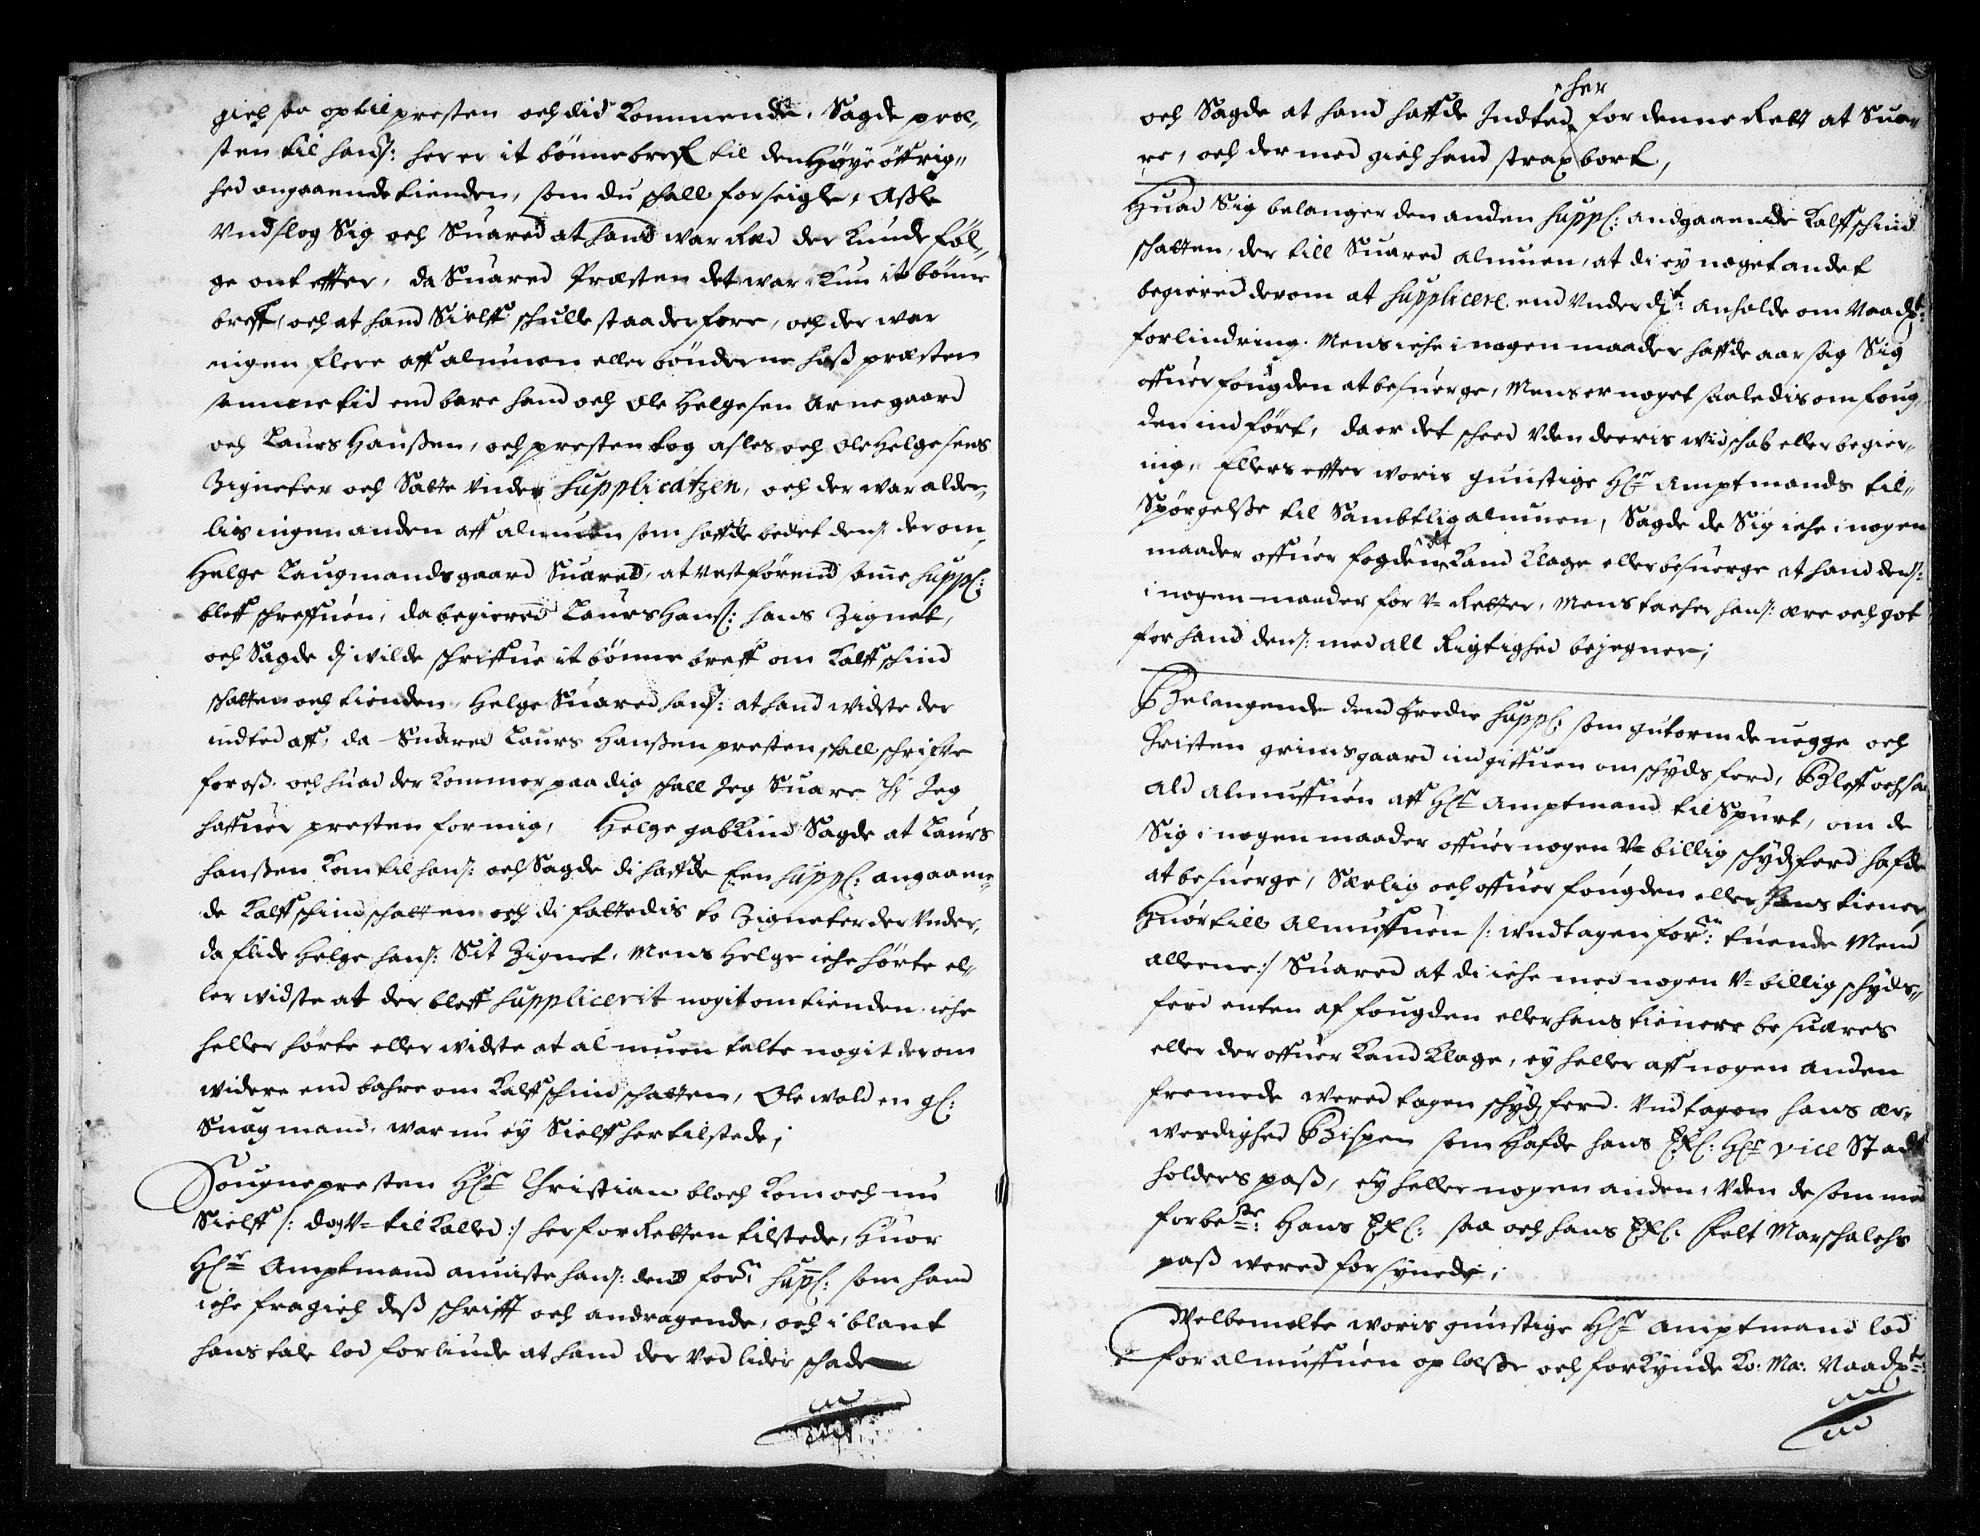 gich saa op til presten och did kommende, Sagde præ„
sten til hanß: her er it bönnebreff til den Höye öffrig„
hed angaaende tienden, som du schall forseigle, Aßle
Vndslog Sig och Suared at hand war Red der kunde föl„
ge ont effter, da Suared Præsten det war kun it bönne
breff, och at hand Sielff schulle staa derfore, och der war
ingen flere aff almuen eller bönderne hoß præsten
samme tid end bare hand och Ole Helgesen Arnegaard
och Laurs Hanßen, och presten tog asles och Ole Helgesens
Zigneter och Satte vnder Supplicatzen, och der war alde„
lis ingen anden aff almuen som haffde bedet denß: derom,
Helge Laugmandsgaard Suared, at vest förend samme Suppl:
bleff schreffuen, da begiered Laurs Hanß: hans Zignet,
och Sagde di wilde schriffue it bönne breff om Kalffschind
schatten och tienden, Helge Suared hanß: at hand widste der
indted aff, da Suared Laurs Hanßen presten schall schriffve
for oß, och huad der kommer paa dig schall Jeg Suare thi Jeg
haffuer presten for mig, Helge gabkind Sagde at Laurs
Hanßen kom til hanß: och Sagde di haffde Een Suppl: angaaen„
de Kalffschindschatten och di fattedis to Zigneter der vnder,
da flide Helge hanß: Sit Zignet, Mens Helge iche hörte el„
ler widste at der bleff Supplicerit nogit om tienden iche
heller hörte eller widste at almuen talte nogit derom
widere end bahre om Kalffschindschatten, Ole wold en gl:
Suag mand, war nu ey Sielff her tilstede;
Sougnepresten Hr Christian bloch kom och nu
Sielff /: dog V= til kalled :/ her for Retten tilstede, Huor
Hr Amptmand auiste hanß: dend forn: Suppl: som hand
iche fragich deß schrifft och andragende, och iblant
hans tale lod forliude at hand der ved lider schade
och Sagde at hand haffde Indted her for denne Rett at Sua„
re, och der med gich hand strax bort,
Huad Sig belanger den anden Suppl: andgaaende Kalffschind
schatten, der till Suared almuen, at di ey noget andet
begiered derom at Supplicere end vnderdst: anholde om Naadst:
forlindring. Mens iche i nogen maader haffde aarsag Sig
offuer fougden at besuerge, Mens er noget saaledis om foug„
den indfört, da er det scheed vden deeris widschab eller begier„
ing, Ellers effter woris gunstige Hr Amptmands til„
Spörgelße til Sambtlig almuen, Sagde de Sig iche i nogen
maader offuer fogden at kand klage eller besuerge at hand denß:
i nogen maader for V= Retter, Mens tacher hanß: ære och got
for hand denß: med all Rigtighed bejegner;
Belangende dend tredie Suppl: som gutorm de uegge och
Christen grimsgaard indgiffuen om schydsferd, Bleff och saa
Ald Almuffuen aff Hr Amptmand tilSpurt, om de
Sig i nogen maader offuer nogen V= billig schydsferd hafde
at besuerge, Særlig och offuer fougden eller Hans tiener
Huortill Almuffuen /: vndtagen forn: tuende Mend
alleene :/ Suared at di iche med nogen V= billig schyds„
ferd enten af fougden eller hans tienere besuares
eller der offuer kand klage, ey heller aff nogen anden
fremede wered tagen schydsferd. Vndtagen hans ær„
werdighed Bispen som hafde hans Exl: Hr vice Stadt
holders paß, ey heller nogen anden, vden de som med
forbete: Hans Exl: saa och hans Exl: Felt Marschalchs
paß wered forsynede;
Welbemelte woris gunstige Hr Amptmand lod
for almuffuen oplæße och forkynde Ko: Ma: Naadste: